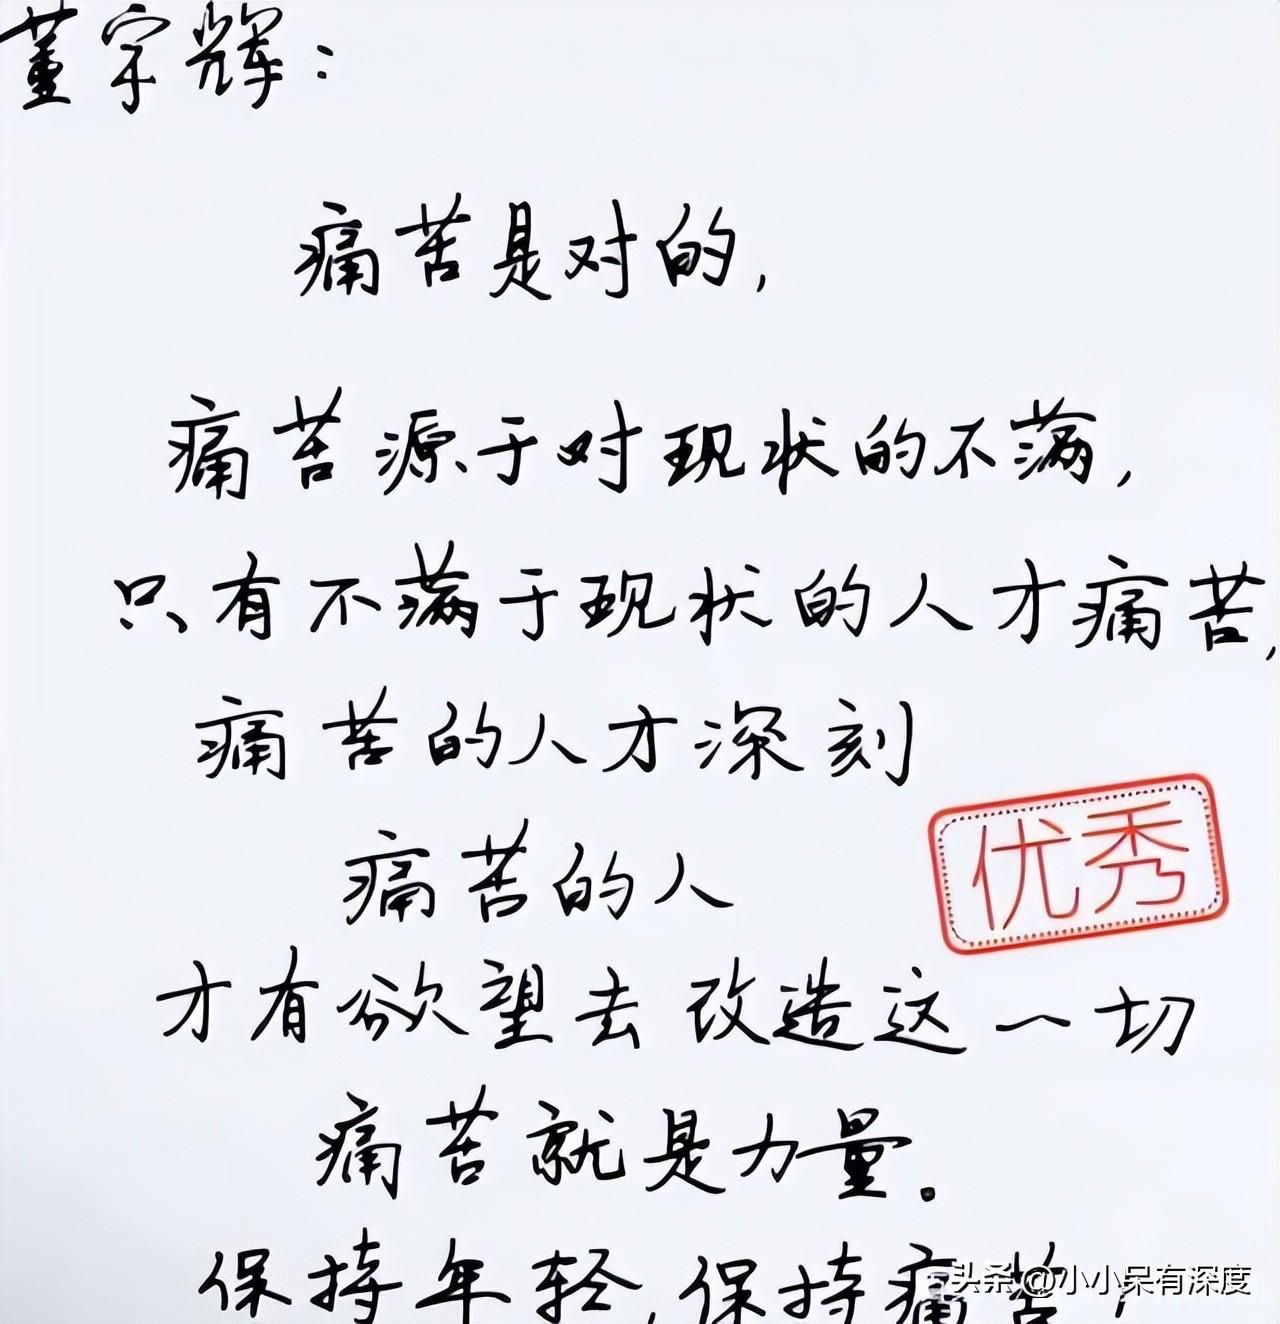 董宇辉：
痛苦是对的，
痛苦源于对现状的不满，
只有不满于现状的人才痛苦，
痛苦的人才深刻
优秀
痛苦的人
才有欲望去改造这一切
痛苦就是力量。
保持年轻，保持痛苦！
头条 @小小呆有深度